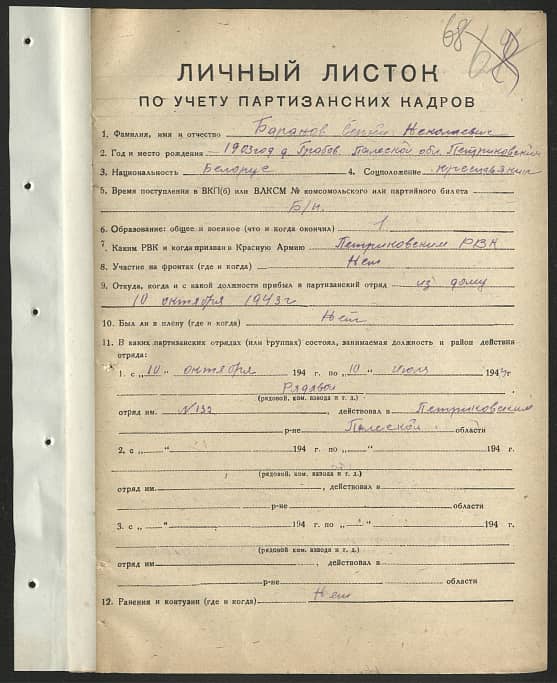 68
ЛИЧНЫЙ ЛИСТОК
ПО УЧЕТУ ПАРТИЗАНСКИХ КАДРОВ
1. Фамилия, имя и отчество Баранов Николаевич
2. Год и место рождения 1903 год д. Грабов. Палеской обл. Петриковский
3. Национальность Белорус 4. Соцположение крестьянин
5. Время поступления в ВКП(б) или ВЛКСМ № комсомольского или партийного билета
Б/п.
6. Образование: общее и военное (что и когда окончил) 1
7. Каким РВК и когда призван в Красную Армию Петриковским РВК
8. Участие на фронтах (где и когда) Нет
9. Откуда, когда и с какой должности прибыл в партизанский отряд из дому
10 октября 1943 г
10. Был ли в плену (где и когда) Нет
11. В каких партизанских отрядах (или группах) состоял, занимаемая должность и район действия
отряда:
1. с „10“ октября 194 г. по „10“ июля 194 г
Рядавой
(рядовой, ком. взвода и т. д.)
отряд им. № 132, действовал в Петриковским
р-не Палеской области
2. с „ “ 194 г. по „ “ 194 г.
(рядовой, ком. взвода и т. д.)
отряд им. , действовал в
р-не области
3. с „ “ 194 г. по „ “ 194 г.
(рядовой, ком. взвода и т. д.)
отряд им. , действовал в
р-не области
12. Ранения и контузии (где и когда) Нет